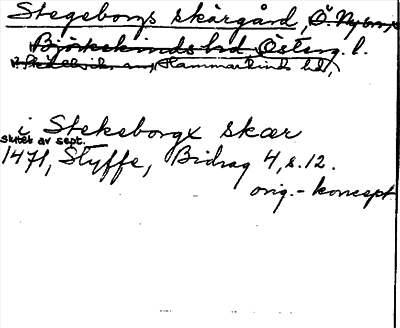 Stegeborgs skärgård, Ö. Ny
Björkekinds hd, Österg. l.
Hammarkinds hd,
i Stekeborgx skær
slutet av sept.
1471, Styffe, Bidrag 4, s. 12.
orig.-koncept